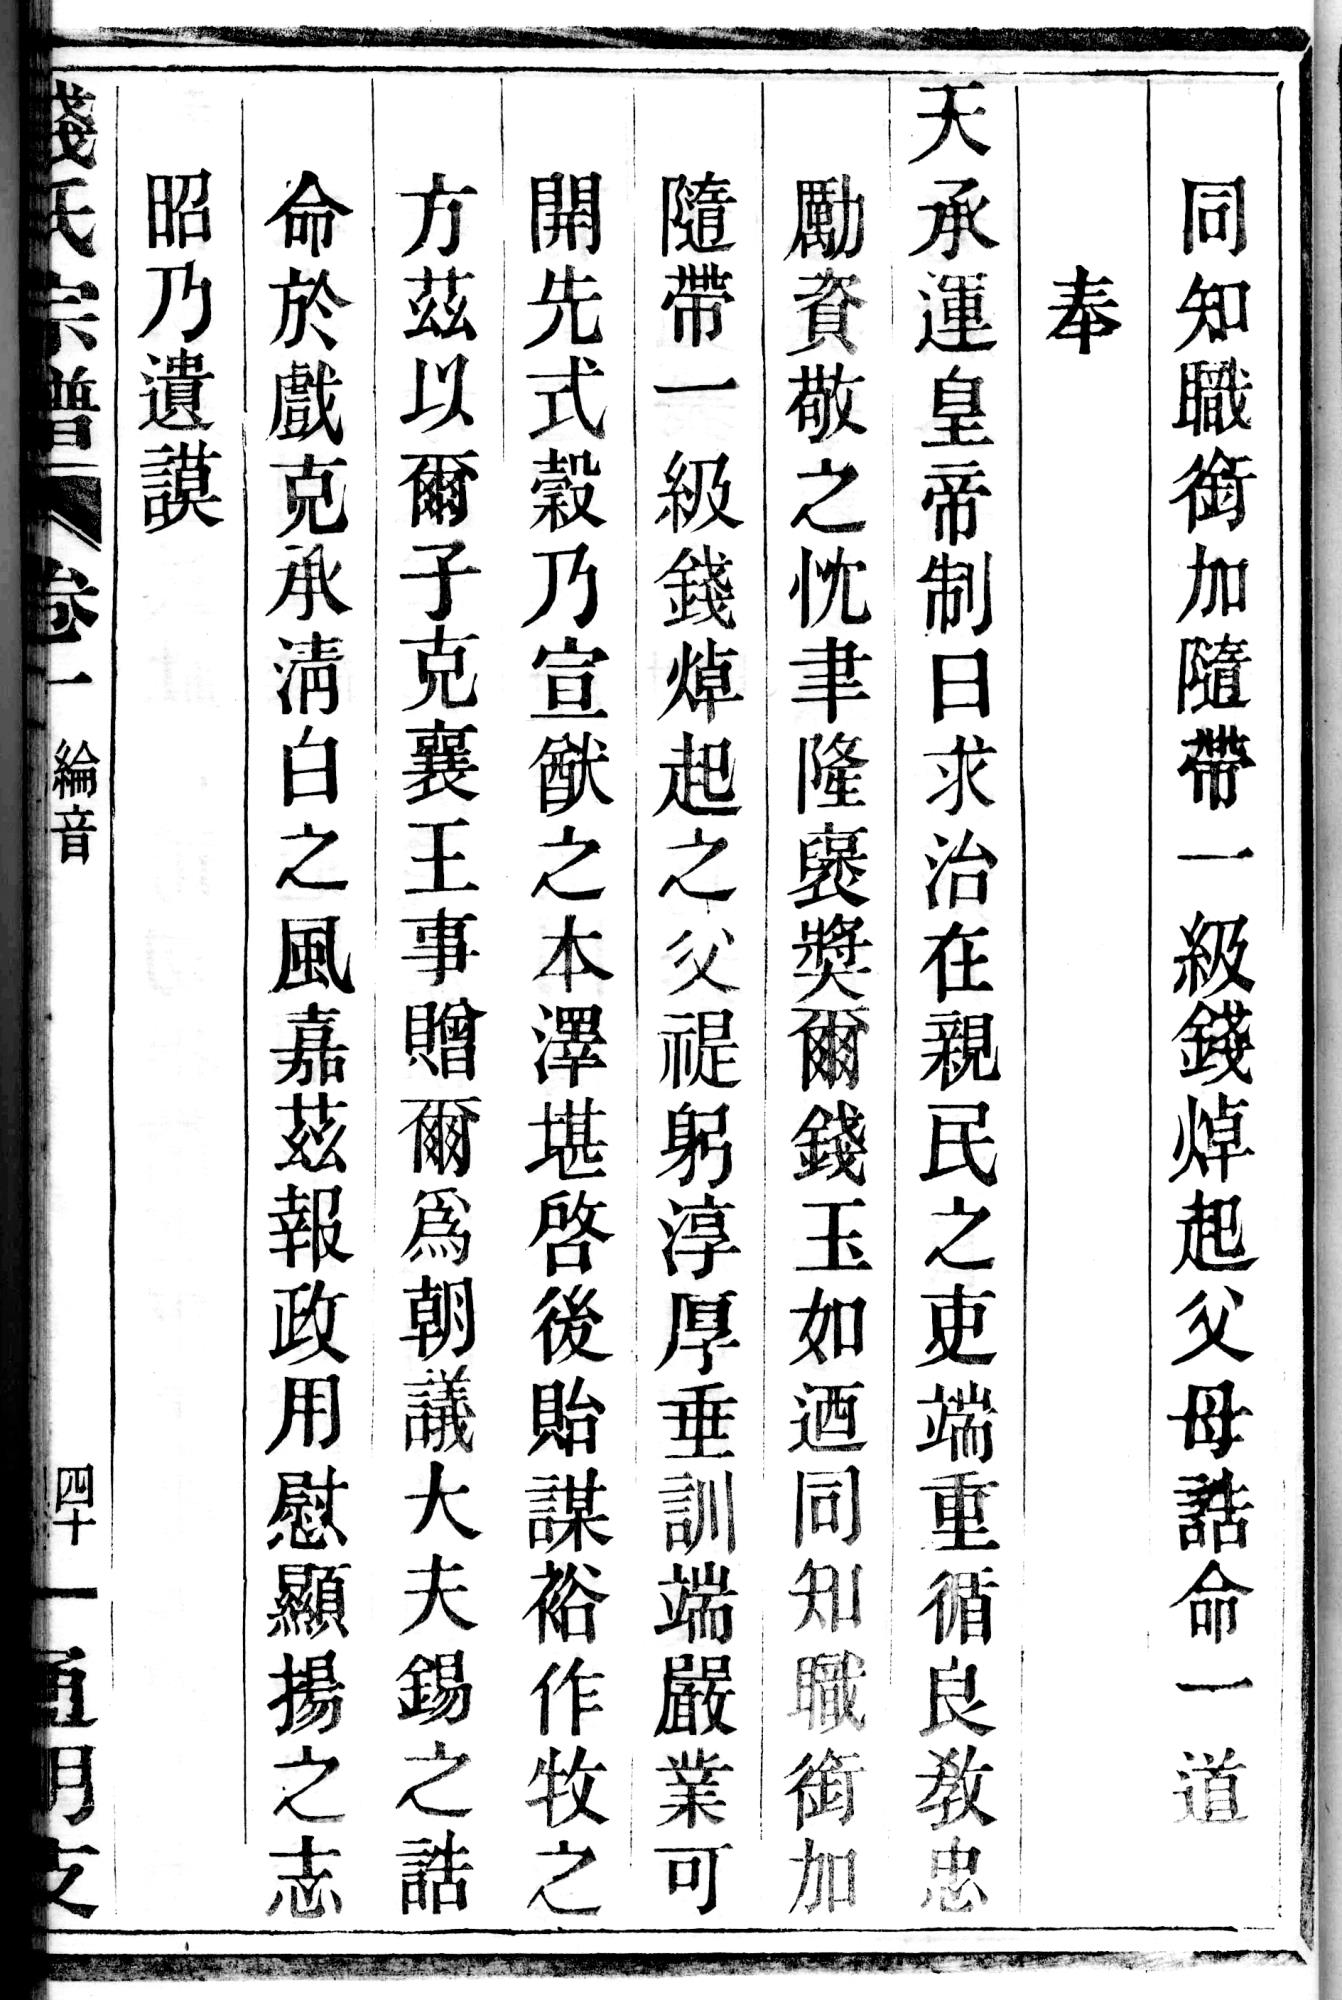 同知職銜加隨帶一級錢焯起父母誥命一道
奉
天承運皇帝制曰求治在親民之吏端重循良教忠
勵資敬之忱聿隆襃奬爾錢玉如迺同知職銜加
隨帶一級錢焯起之父禔躬淳厚垂訓端嚴業可
開先式穀乃宣猷之本澤堪啓後貽謀裕作牧之
方茲以爾子克襄王事贈爾爲朝議大夫錫之誥
命於戲克承淸白之風嘉茲報政用慰顯揚之志
昭乃遺謨
錢氏宗譜 卷一 綸音 四十一 通明支